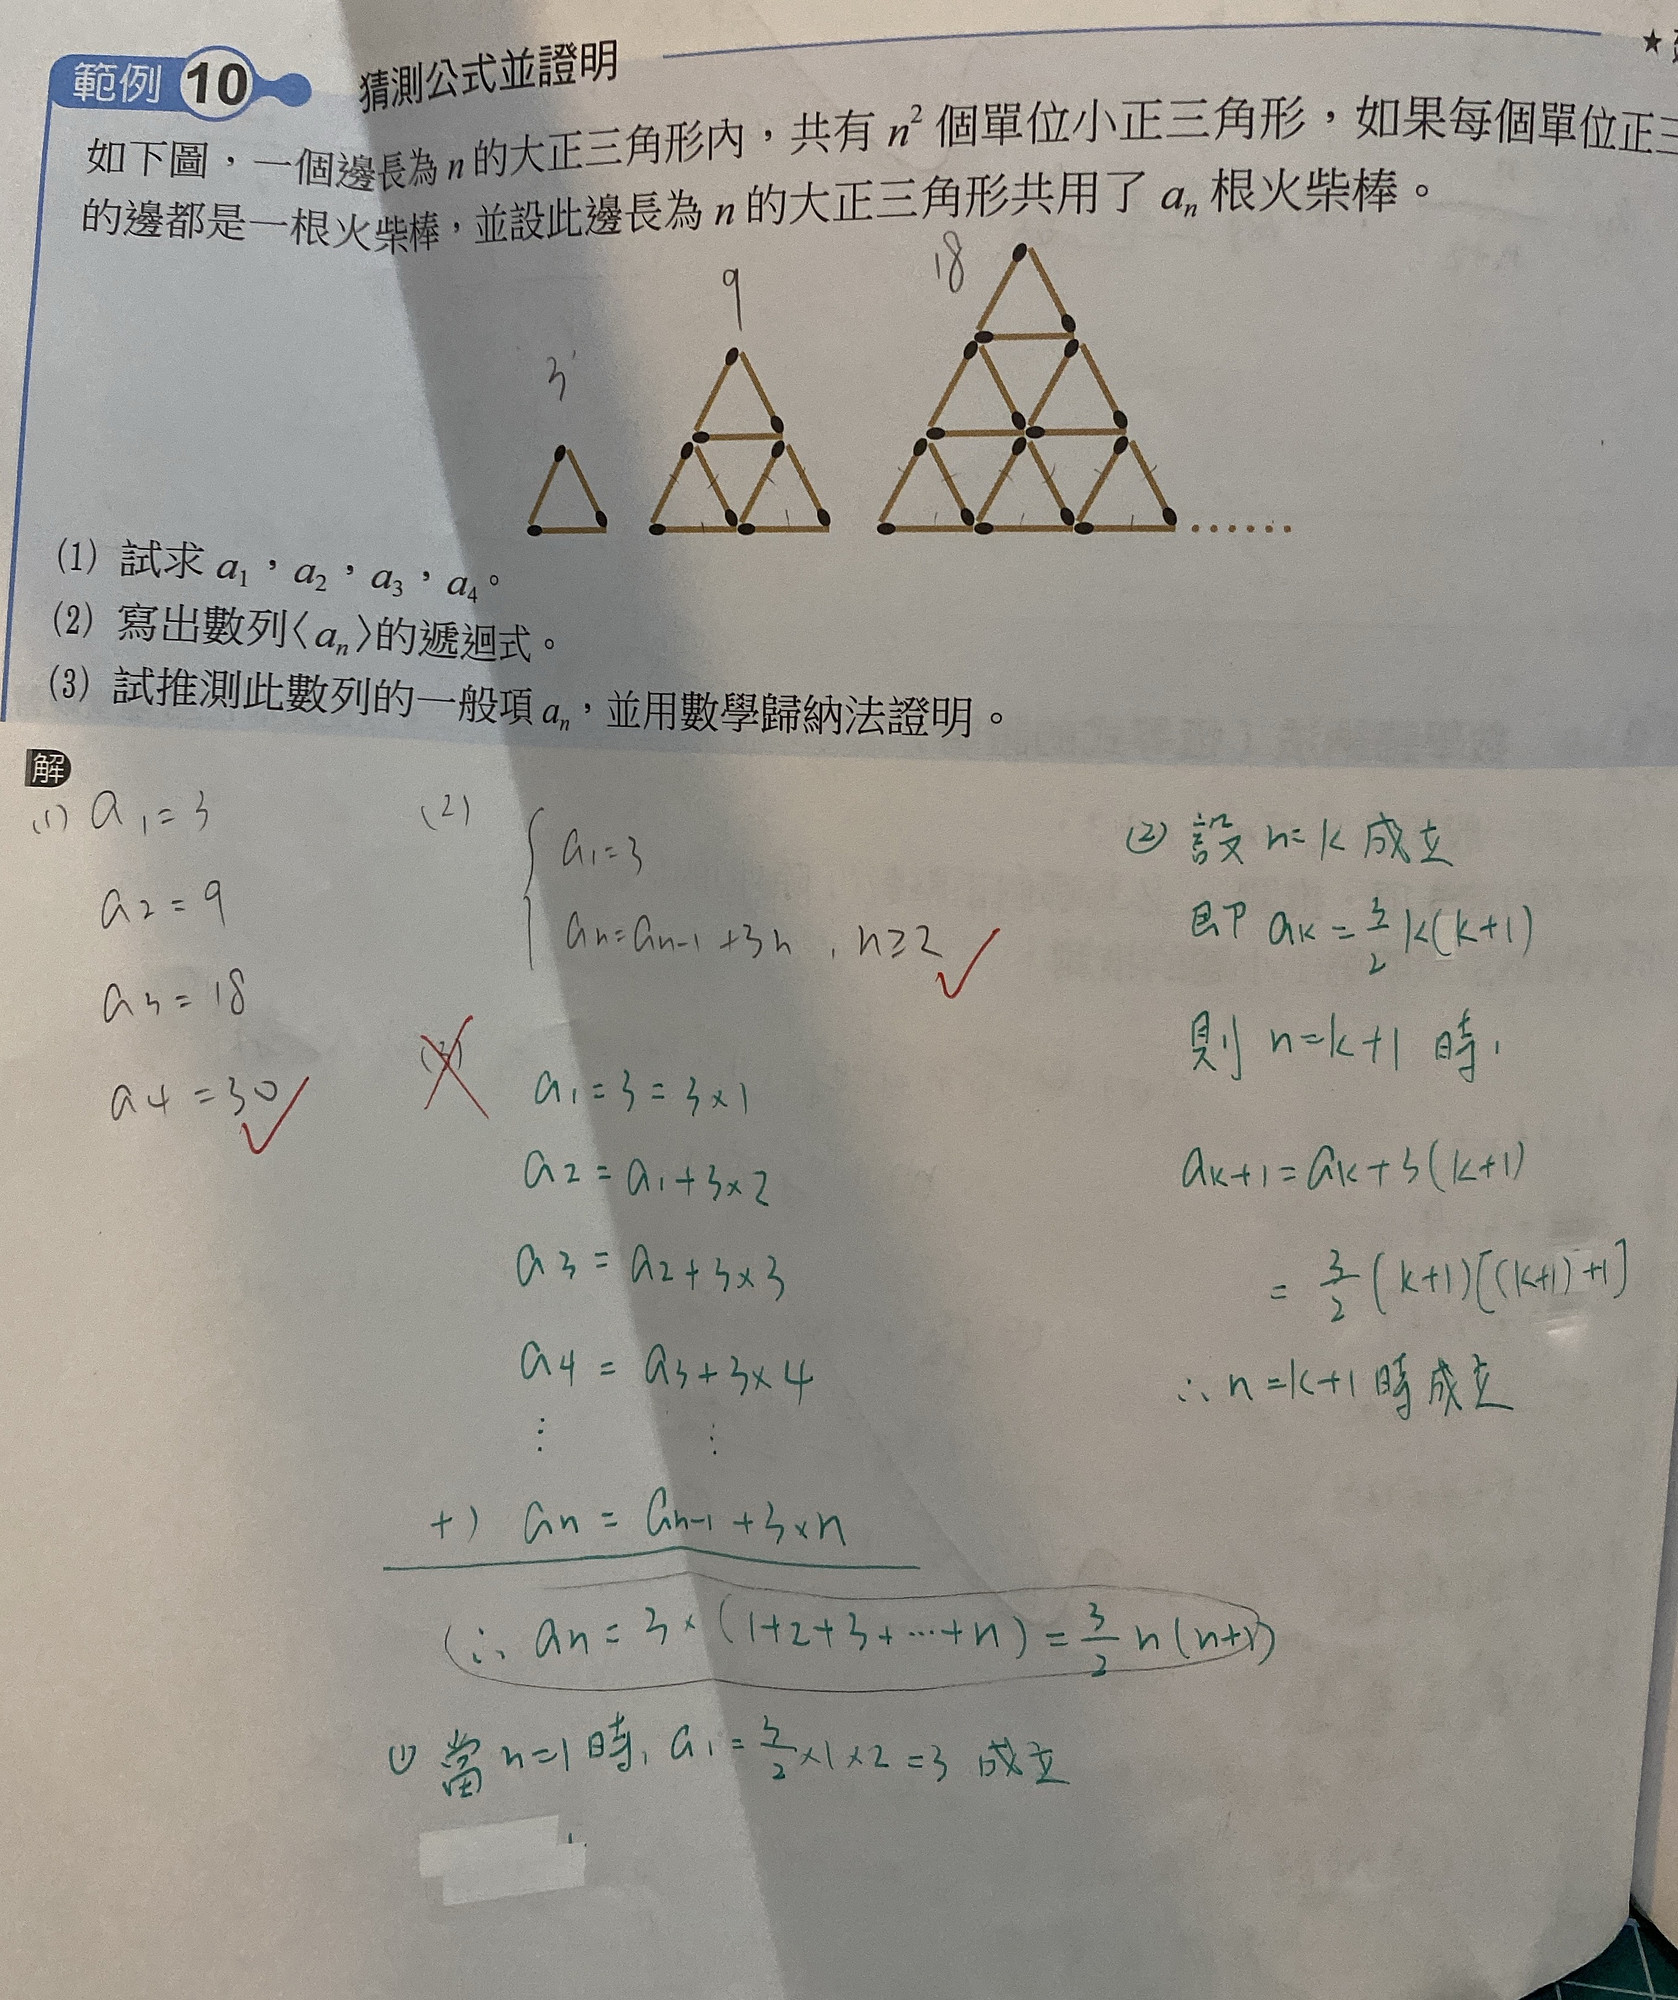 範例 10 猜測公式並證明 ★
如下圖，一個邊長為 n 的大正三角形內，共有 n² 個單位小正三角形，如果每個單位正三
的邊都是一根火柴棒，並設此邊長為 n 的大正三角形共用了 aₙ 根火柴棒。
3 9 18
(1) 試求 a₁，a₂，a₃，a₄。
(2) 寫出數列〈aₙ〉的遞迴式。
(3) 試推測此數列的一般項 aₙ，並用數學歸納法證明。
解
(1) a₁=3
a₂=9
a₃=18
a₄=30
(2)
a₁=3
aₙ=aₙ₋₁+3n , n≥2
(3)
a₁=3=3×1
a₂=a₁+3×2
a₃=a₂+3×3
a₄=a₃+3×4
⋮ ⋮
+) aₙ=aₙ₋₁+3×n
∴ aₙ=3×(1+2+3+⋯+n)=3/2 n(n+1)
① 當 n=1 時, a₁=3/2×1×2=3 成立
② 設 n=k 成立
即 aₖ=3/2 k(k+1)
則 n=k+1 時,
aₖ₊₁=aₖ+3(k+1)
=3/2(k+1)[(k+1)+1]
∴ n=k+1 時成立